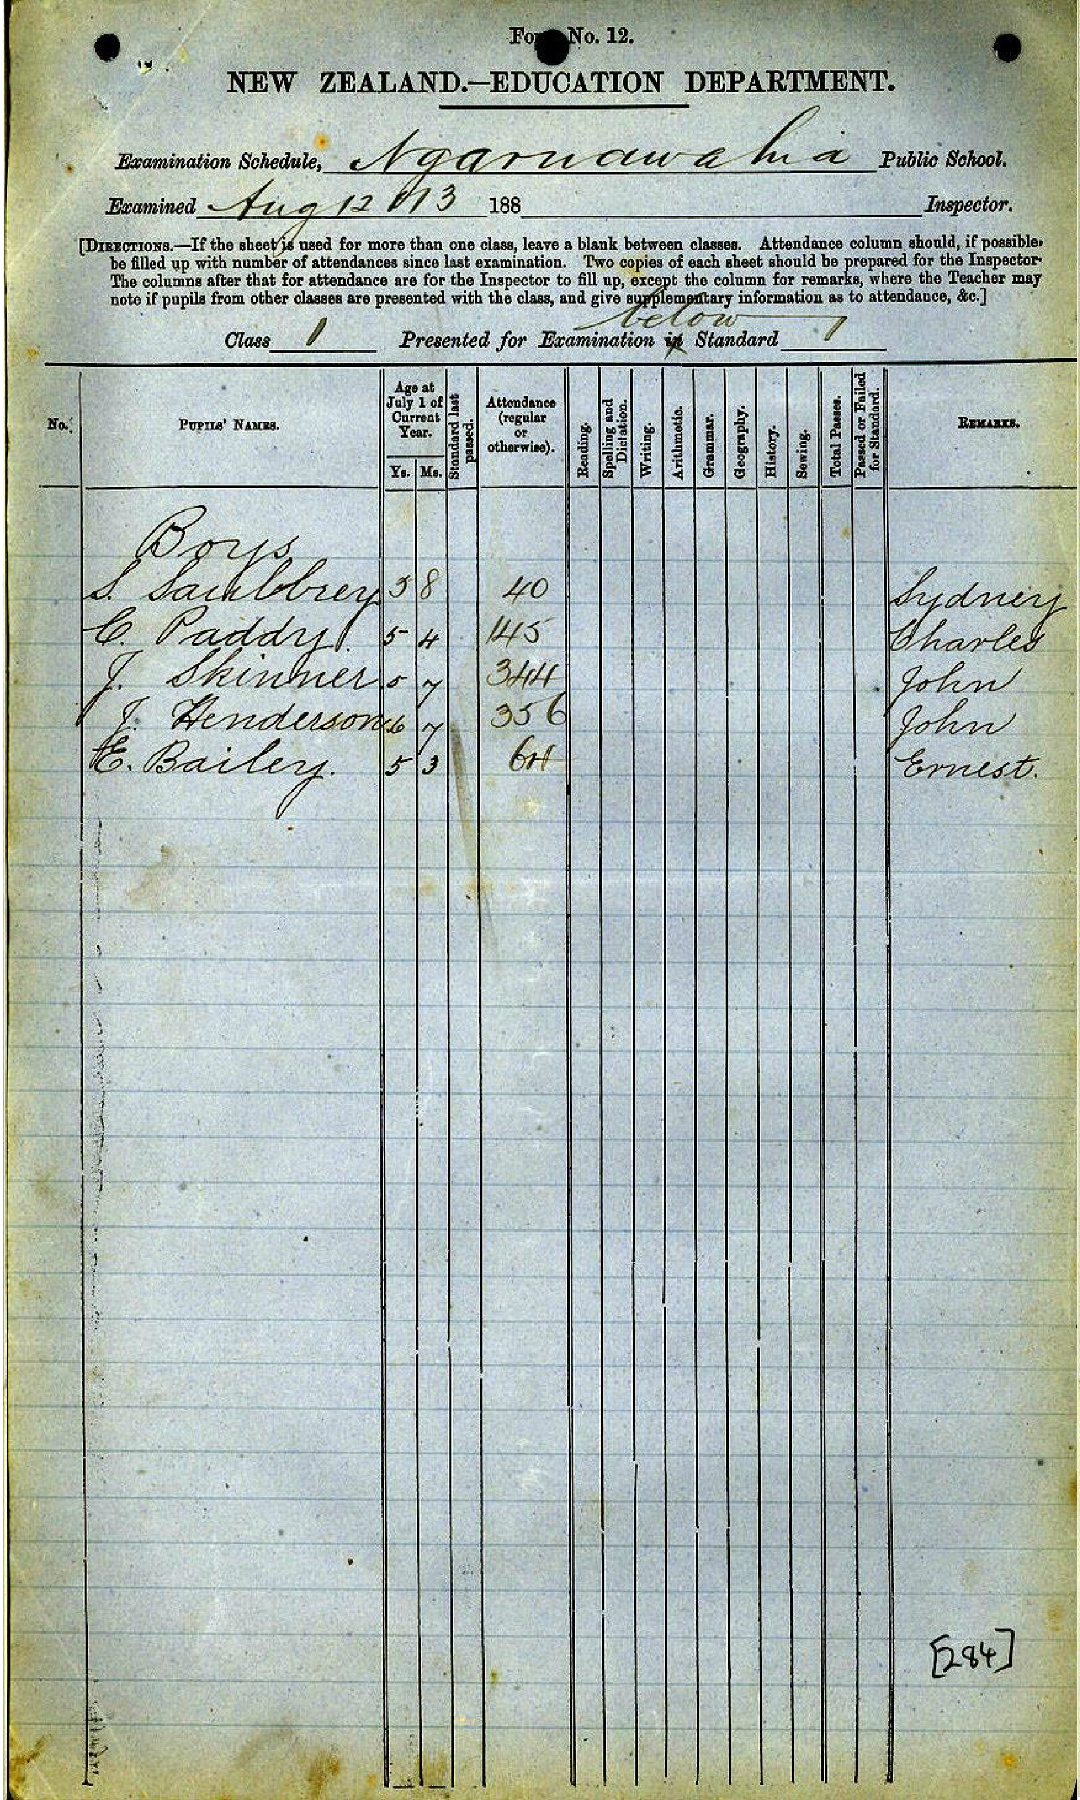 No. 12.
NEW ZEALAND.—EDUCATION DEPARTMENT.
Examination Schedule, Ngaruawahia Public School.
Examined Aug 12 & 13 188 Inspector.
[DIRECTIONS.—If the sheet is used for more than one class, leave a blank between classes. Attendance column should, if possible,
be filled up with number of attendances since last examination. Two copies of each sheet should be prepared for the Inspector.
The columns after that for attendance are for the Inspector to fill up, except the column for remarks, where the Teacher may
note if pupils from other classes are presented with the class, and give supplementary information as to attendance, &c.]
below
Class 1 Presented for Examination in Standard 1
No. PUPILS' NAMES. Age at July 1 of Current Year. Ys. Ms. Standard last passed. Attendance (regular or otherwise). Reading. Spelling and Dictation. Writing. Arithmetic. Grammar. Geography. History. Sewing. Total Passes. Passed or Failed for Standard. REMARKS.
Boys
S. Saulbrey 8 40 Sydney
C. Paddy. 5 4 145 Charles
J. Skinner 5 7 344 John
J. Henderson 6 7 356 John
E. Bailey. 5 3 64 Ernest.
[284]